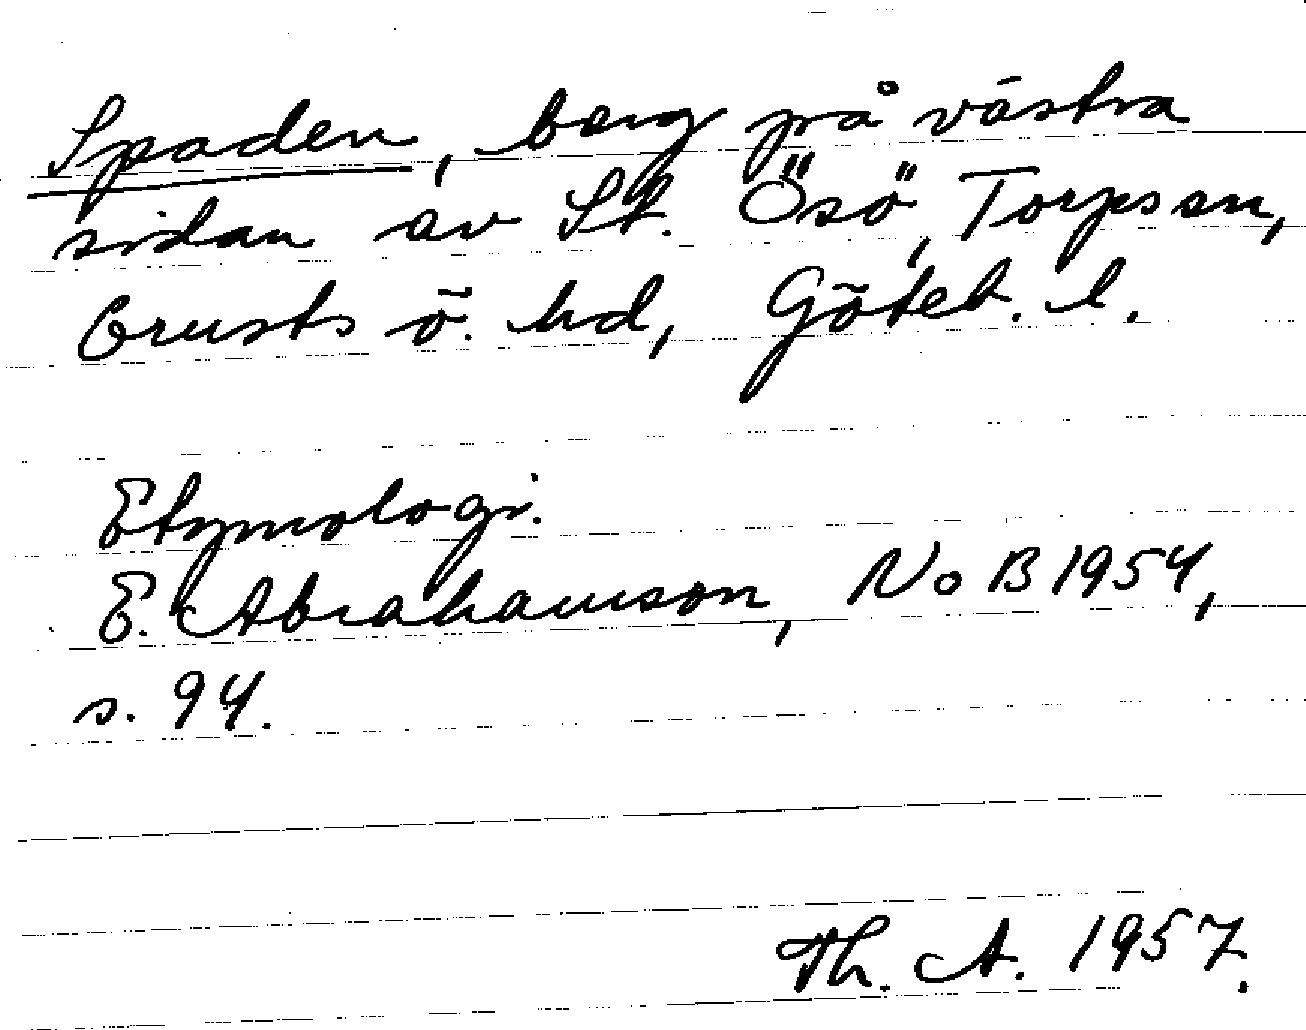 Spaden, berg på västra
sidan av St. Ösö, Torps sn,
Orusts ö. hd, Göteb. l.
Etymologi.
E. Abrahamson, NoB 1954,
s. 94.
Th. A. 1957.